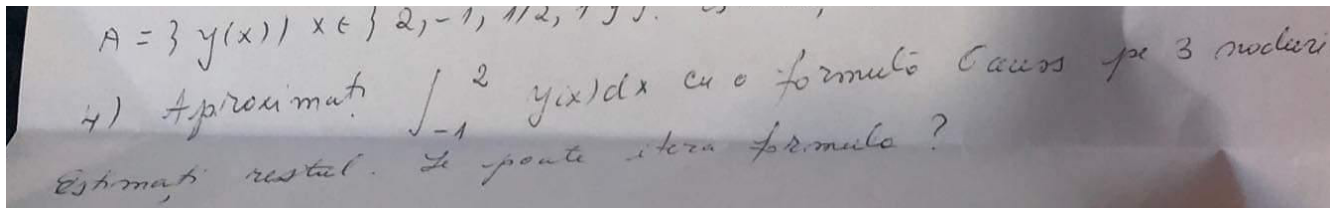 A = } y(x) / x ∈ } 2, -1, 1/2, 1 } }.
4) Aproximați ∫_{-1}^{2} y(x)dx cu o formulă Gauss pe 3 noduri
Estimați restul. Se poate itera formula ?